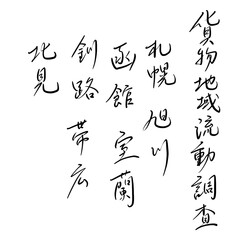 貨物地域流動調査
札幌 旭川
函館 室蘭
釧路 帯広
北見